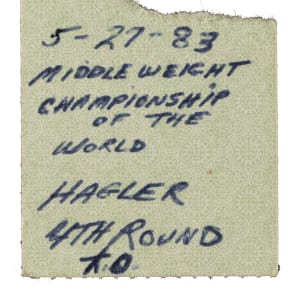 5-27-83
MIDDLEWEIGHT
CHAMPIONSHIP
OF THE
WORLD
HAGLER
4TH ROUND
K.O.